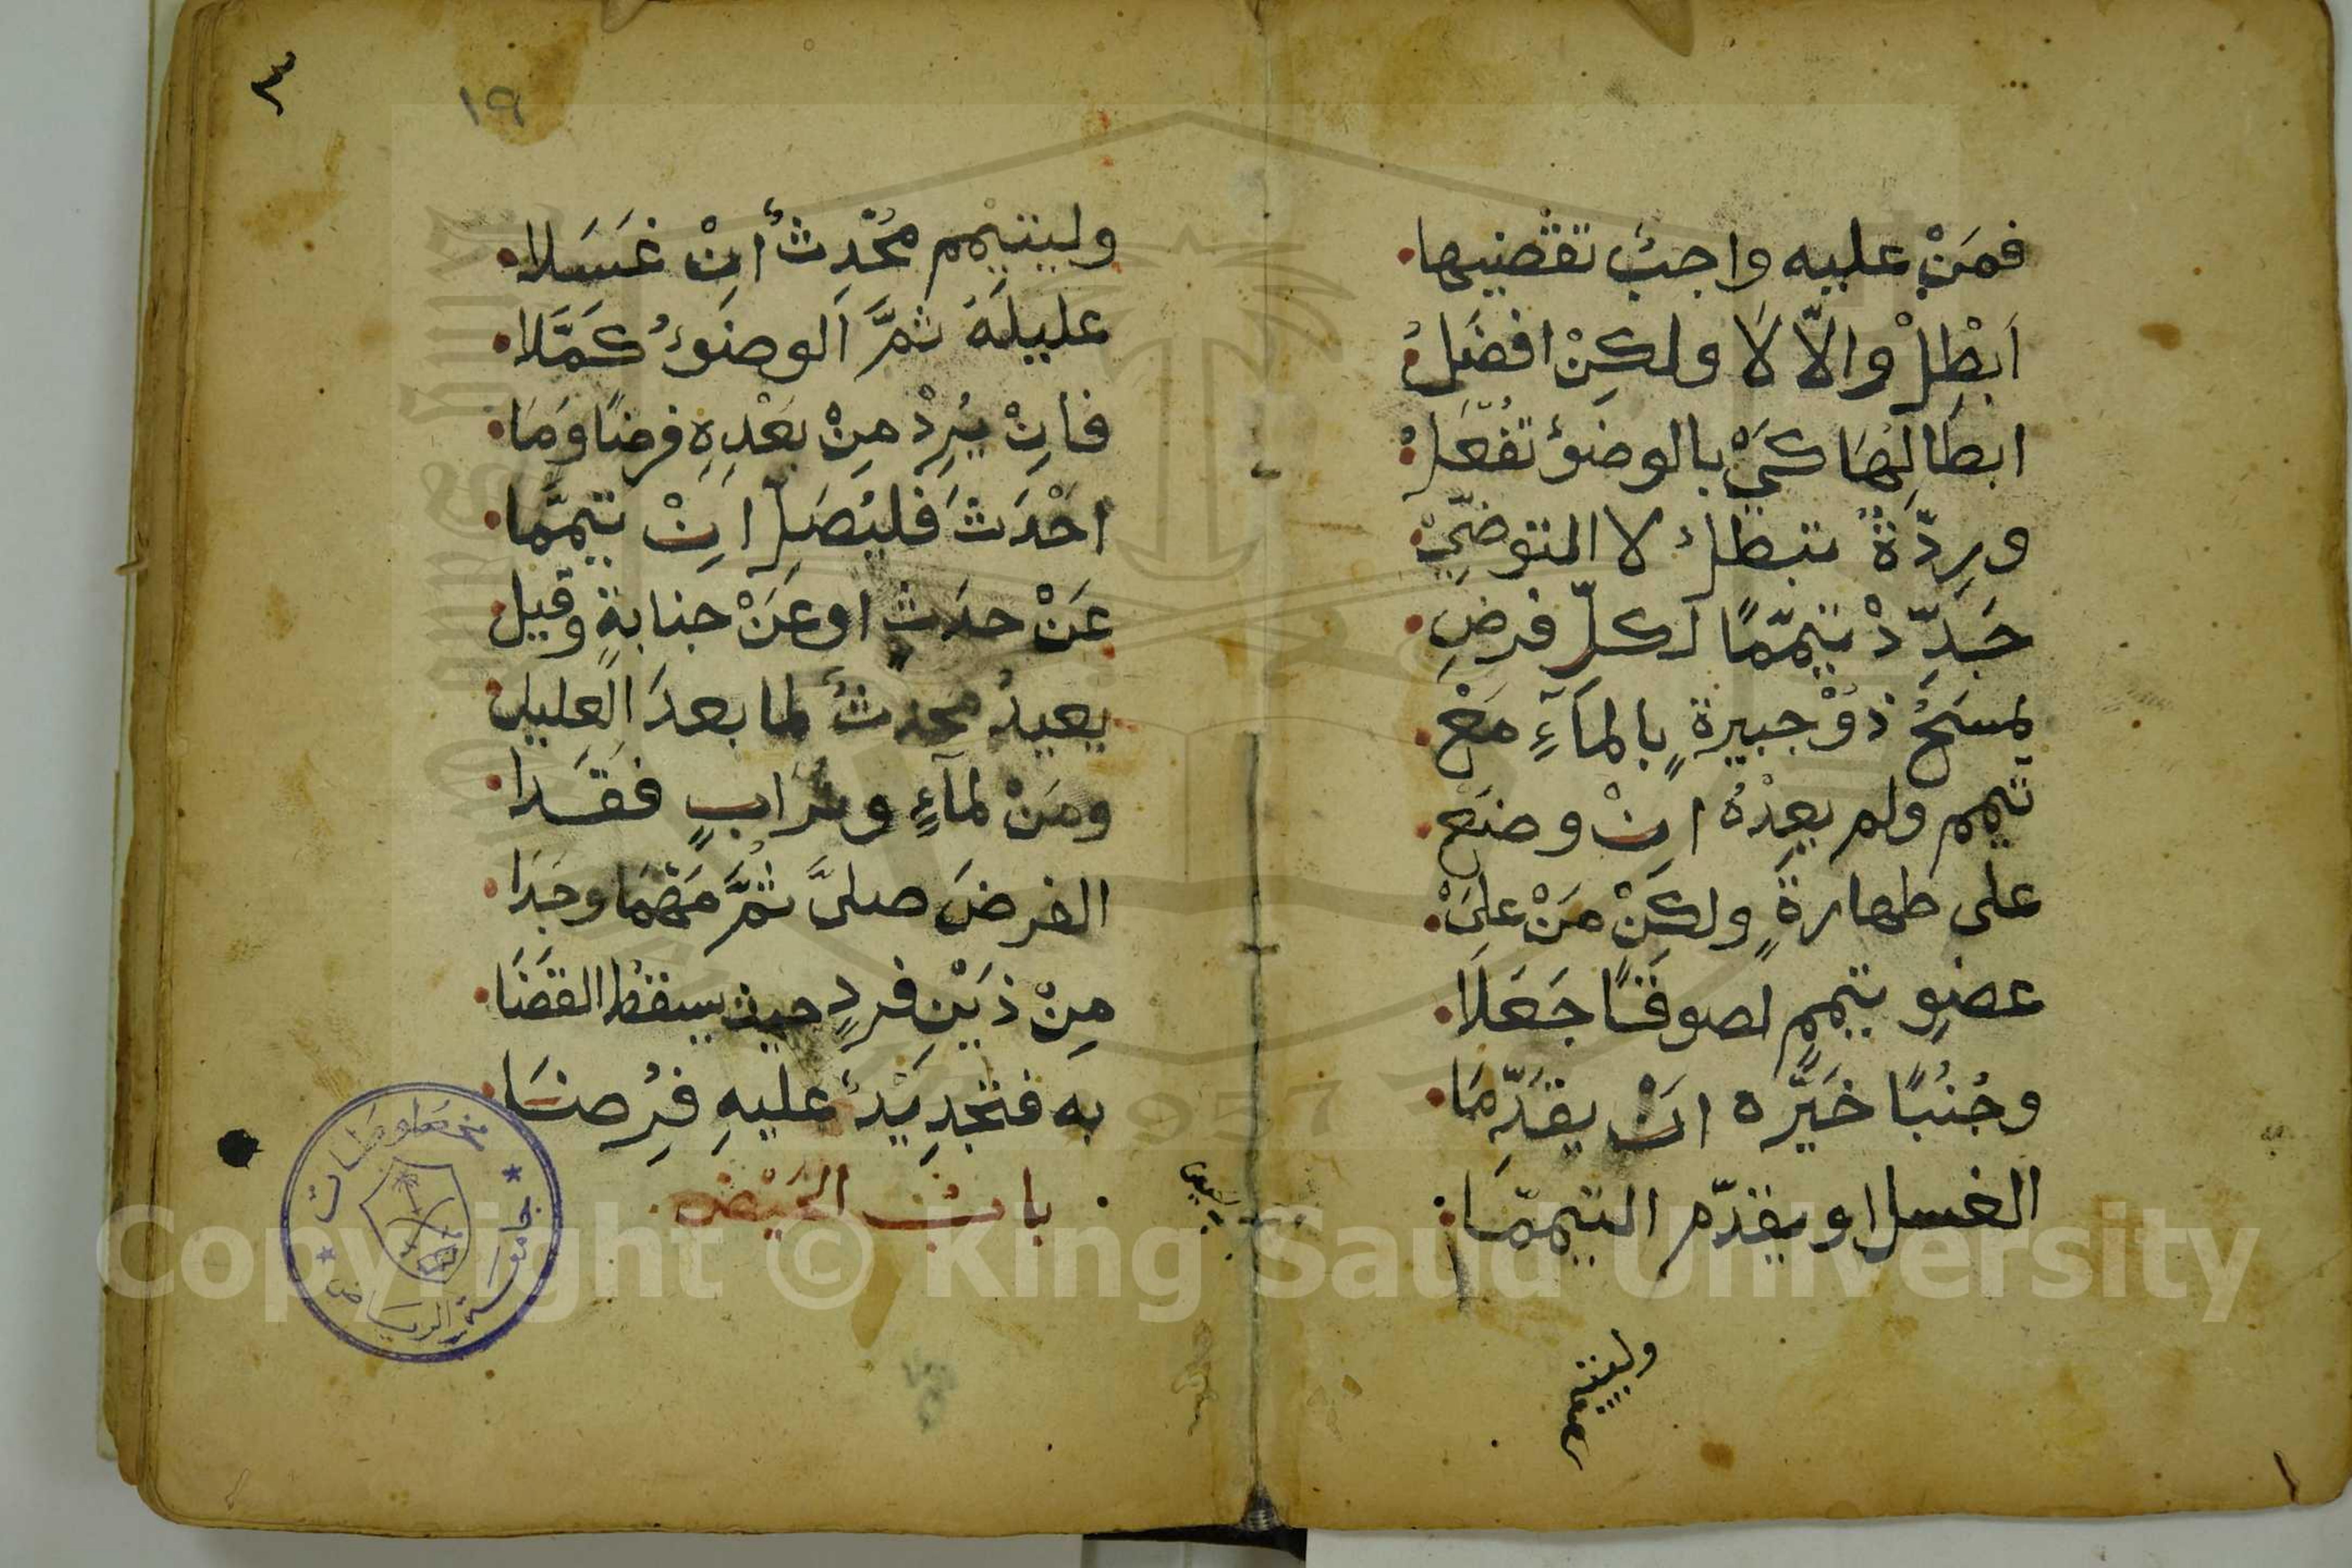 فمَنْ عليه واجبٌ تقْضيها
اَبْطِلْ والّا لَا ولكِنْ افضَلُ
ابطالِهَا كيْ بالوضؤُ تُفْعَلُ
ورِدّةٌ تبطلُ لا التوضّيْ
جَدِّدْ تيمّمًا لكلّ فرضِ
يمسَحُ ذوْ جبيرةٍ بالمآءِ مَعْ
تيمم ولم يعِدْهُ انْ وضَعْ
على طهارةٍ ولكِنْ مَنْ علىْ
عضوٍ تيمم لصوقًا جَعَلَا
وجُنُبًا خَيّره انْ يقدّمَا
الغسل او يقدّم التيممَا
وليتيمم
وليتيمم محْدِثٌ انْ غسَلا
عليلَهُ ثمَّ الوضوءُ كمَّلا
فانْ يُرِدْ مِنْ بعْدِهِ فرضًا ومَا
احْدَثَ فليُصَلِّ انْ تيمّما
عَنْ حدَثٍ او عَنْ جنابةٍ وقيل
يعيدُ محدثٌ لما بعدَ العليل
ومَنْ لمآءٍ وترابٍ فقَدا
الفرضَ صلىَّ ثمَّ مَهْمَا وجَدَا
مِنْ ذَيْنِ فردٍ حيث يسقطُ القضَا
به فتجدِيْدٌ عليهِ فُرِضَا
بابُ الحَيْض
٣
١٩
مخطوطات
جامعة الرياض
Copyright © King Saud University
1957